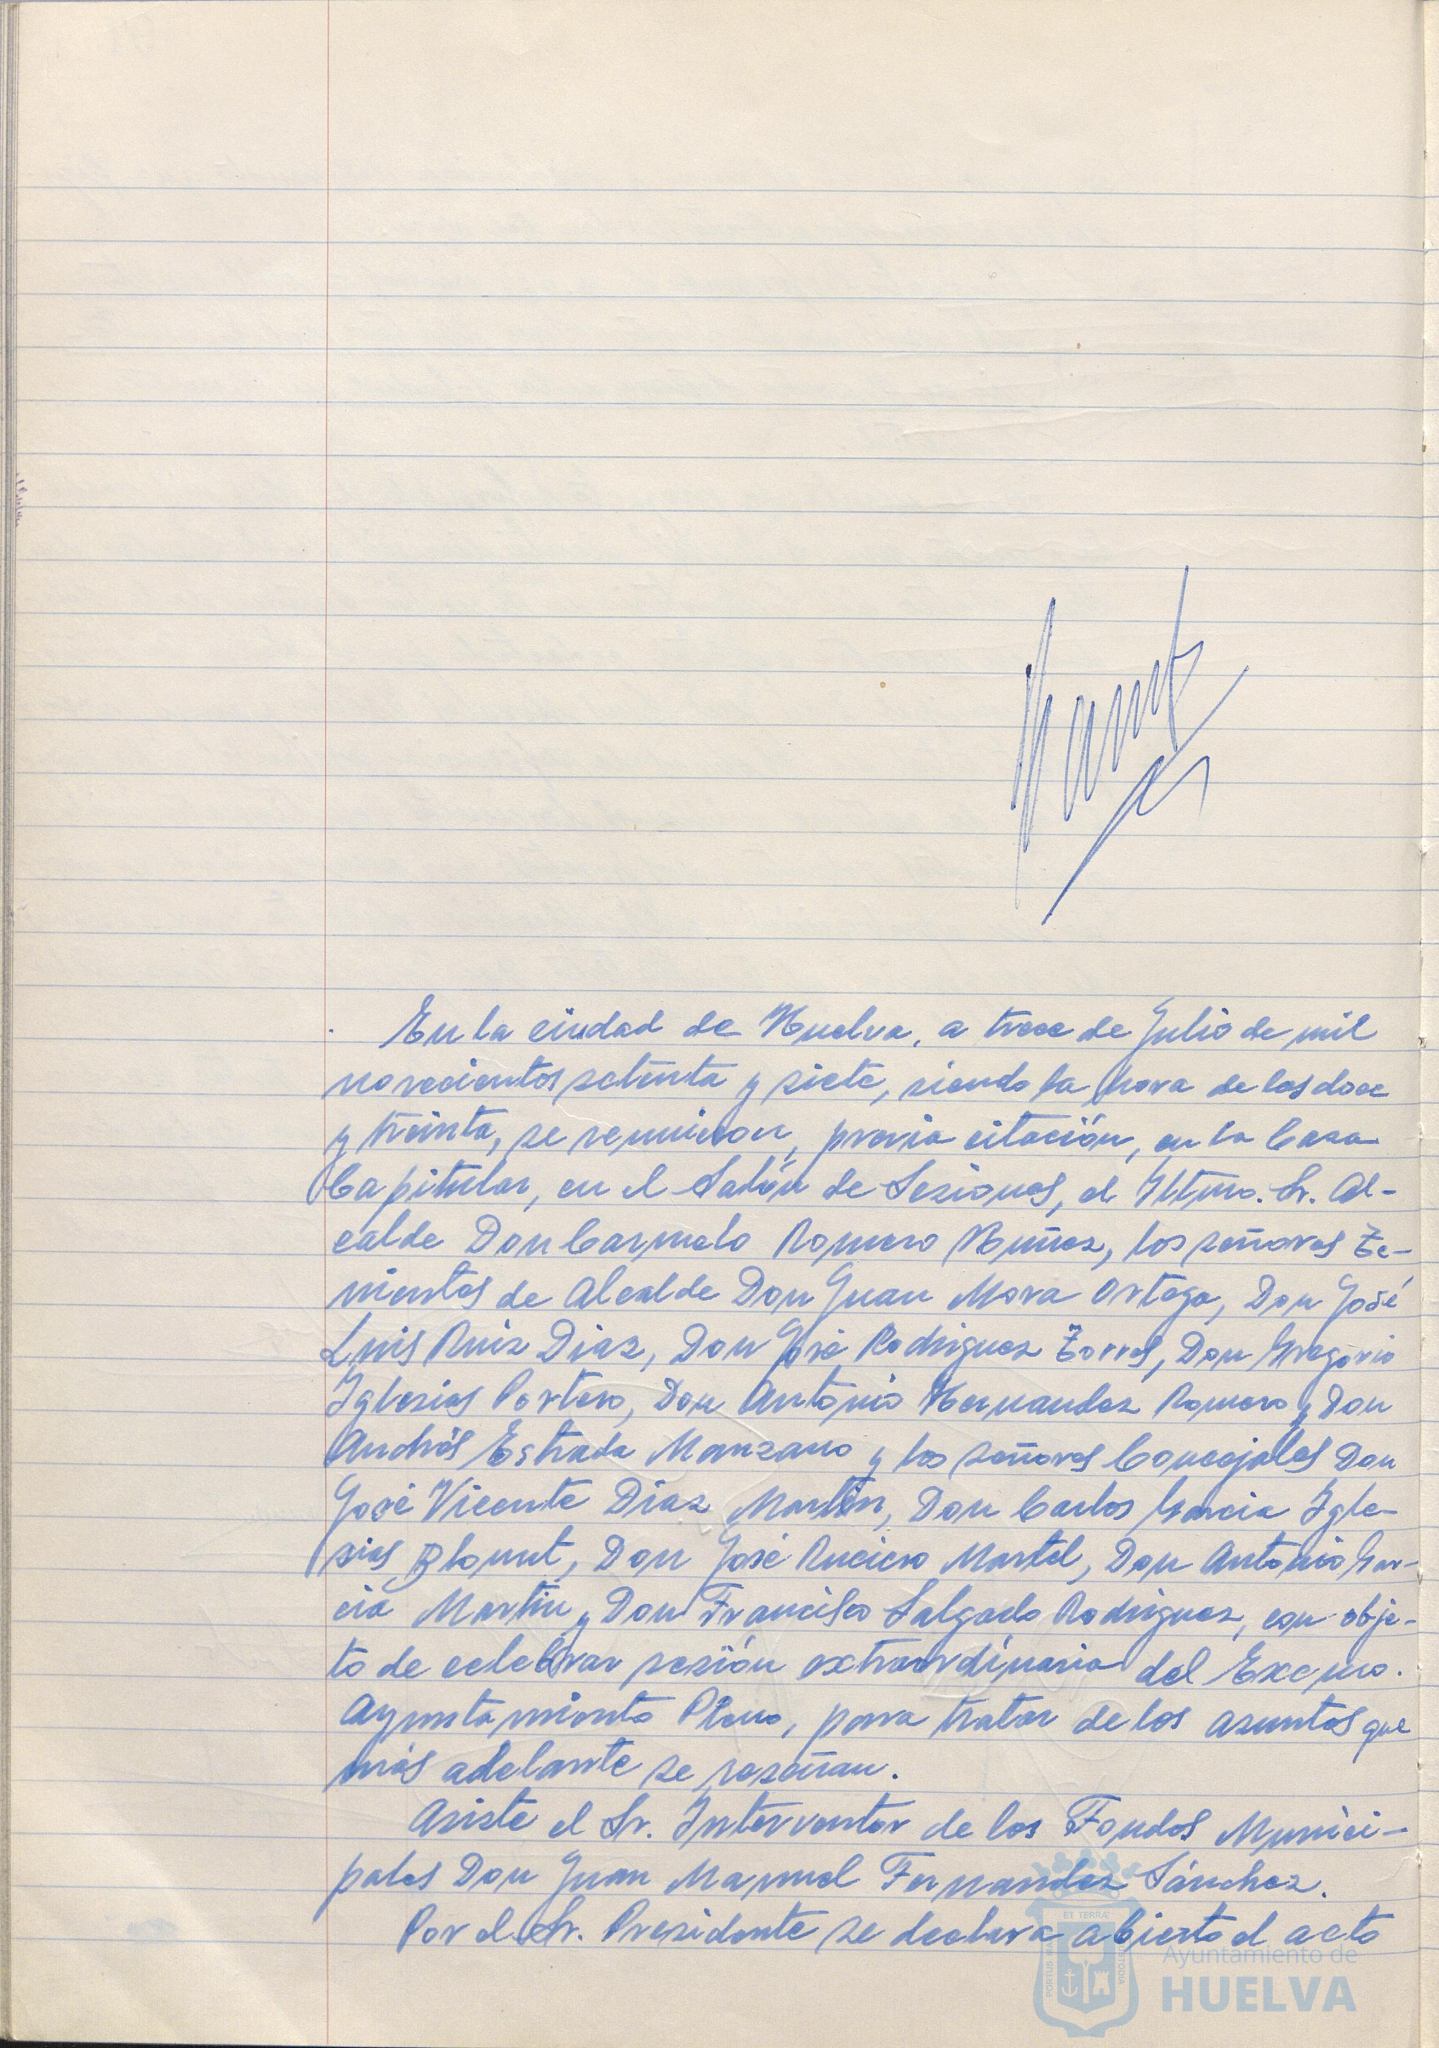 En la ciudad de Huelva, a trece de Julio de mil
novecientos setenta y siete, siendo la hora de las doce
y treinta, se reunieron, previa citación, en la Casa
Capitular, en el Salón de Sesiones, el Iltmo. Sr. Al-
calde Don Carmelo Romero Núñez, los señores Te-
nientes de Alcalde Don Juan Mora Ortega, Don José
Luis Ruiz Diaz, Don José Rodriguez Torres, Don Gregorio
Iglesias Portero, Don Antonio Hernandez Romero y Don
Andrés Estrada Manzano y los señores Concejales Don
José Vicente Diaz Martin, Don Carlos Garcia Igle-
sias Blount, Don José Martel, Don Antonio Gar-
cia Martin y Don Francisco Salgado Rodriguez, con obje-
to de celebrar sesión extraordinaria del Excmo.
Ayuntamiento Pleno, para tratar de los asuntos que
más adelante se reseñan.
Asiste el Sr. Interventor de los Fondos Munici-
pales Don Juan Manuel Fernandez Sánchez.
Por el Sr. Presidente se declara abierto el acto
PORTUS MARIS ET TERRAE CUSTODIA
Ayuntamiento de
HUELVA